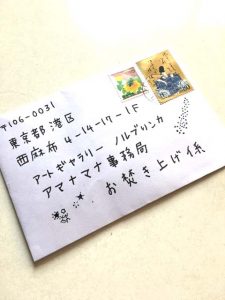 〒106-0031
東京都港区
西麻布 4-14-17-1F
アートギャラリー ノルブリンカ
アマナマナ事務局
お焚き上げ係